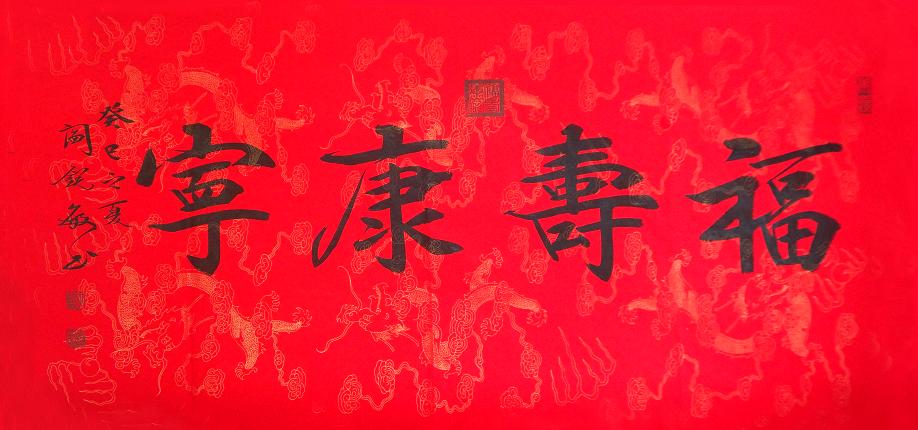 福壽康寧
癸巳之夏
閻銳敏书